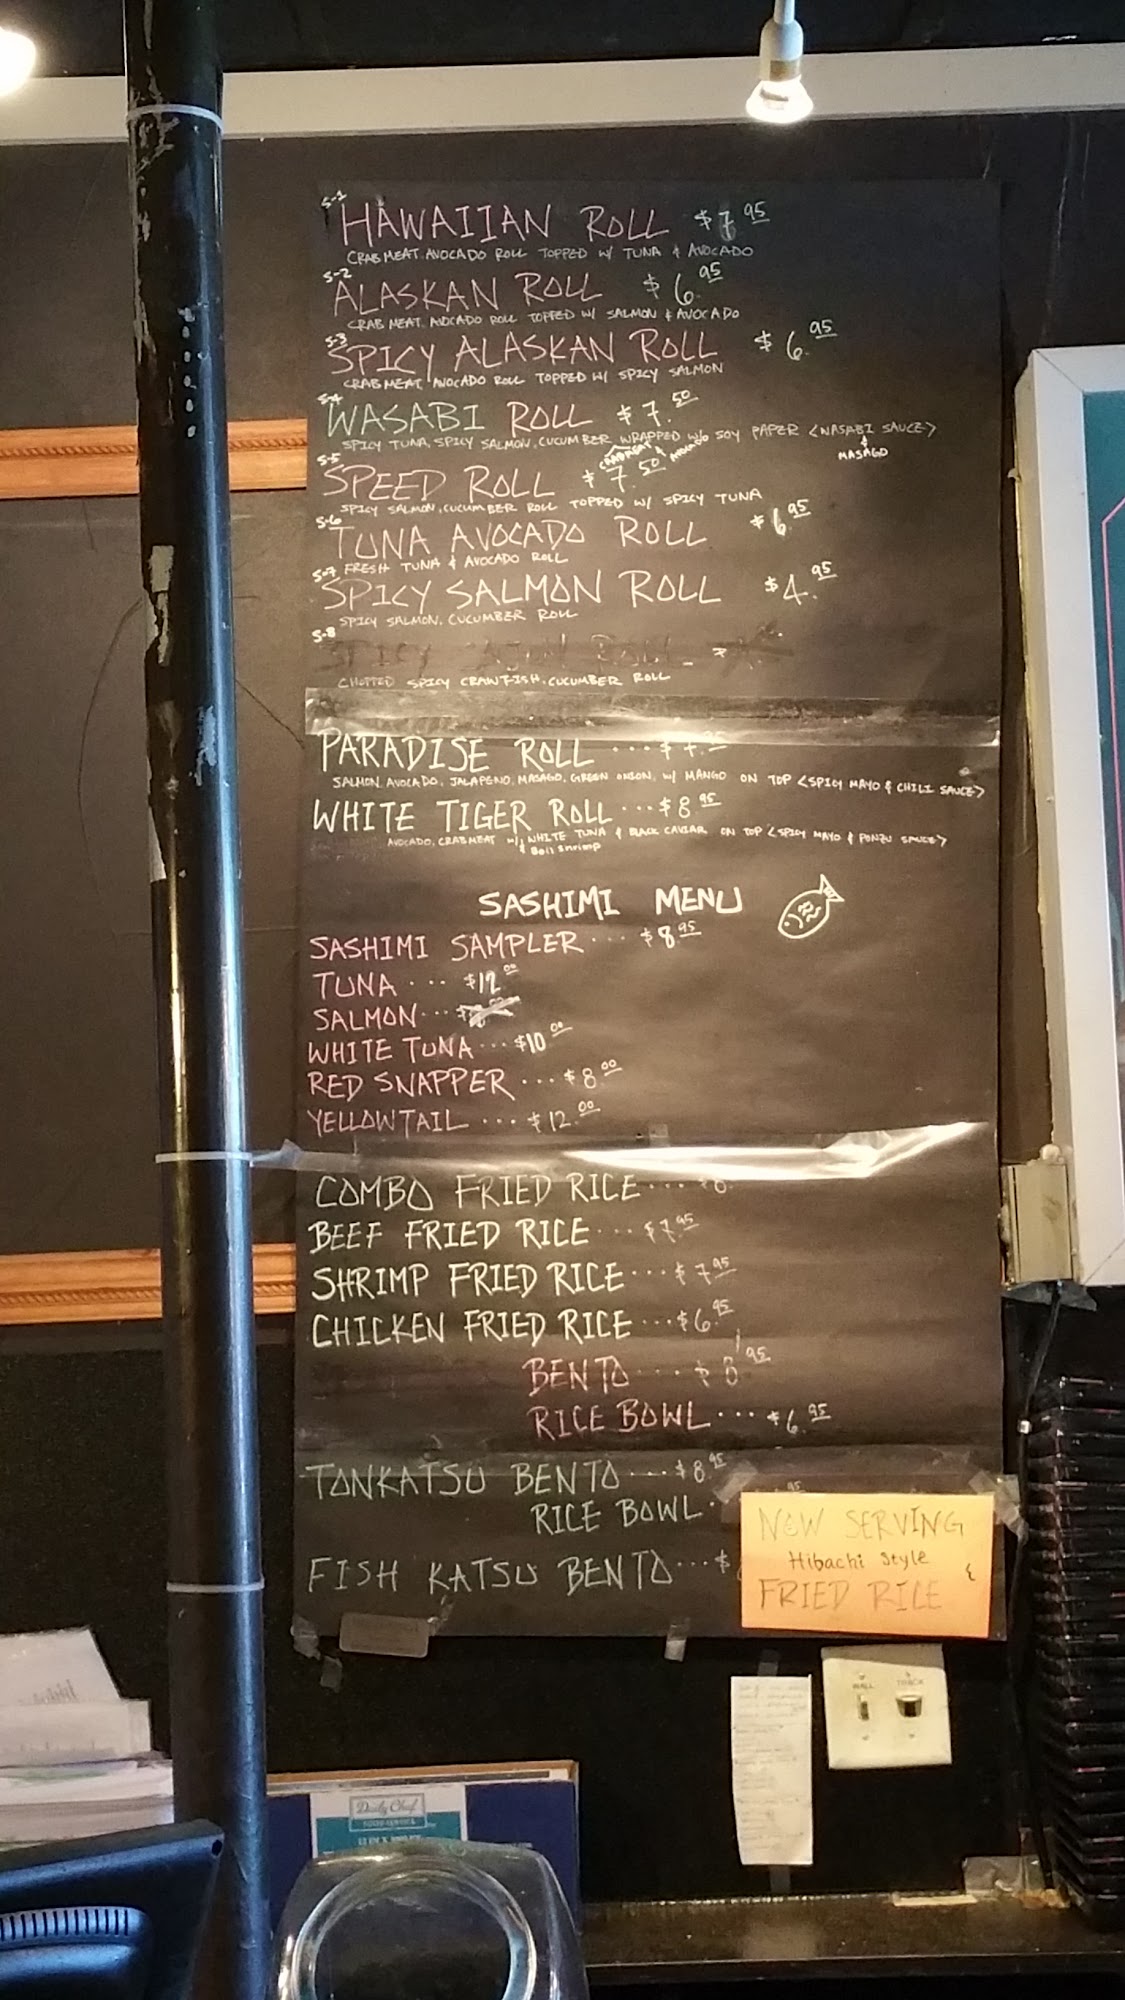 S-1
HAWAIIAN ROLL $7.95
CRAB MEAT. AVOCADO ROLL TOPPED W/ TUNA & AVOCADO
S-2
ALASKAN ROLL $6.95
CRAB MEAT. AVOCADO ROLL TOPPED W/ SALMON & AVOCADO
S-3
SPICY ALASKAN ROLL $6.95
CRAB MEAT, AVOCADO ROLL TOPPED W/ SPICY SALMON
S-4
WASABI ROLL $7.50
SPICY TUNA, SPICY SALMON, CUCUMBER WRAPPED W/ SOY PAPER <WASABI SAUCE>
& MASAGO
CRABMEAT & AVOCADO
S-5
SPEED ROLL $7.50
SPICY SALMON, CUCUMBER ROLL TOPPED W/ SPICY TUNA
S-6
TUNA AVOCADO ROLL $6.95
FRESH TUNA & AVOCADO ROLL
S-7
SPICY SALMON ROLL $4.95
SPICY SALMON, CUCUMBER ROLL
S-8
SPICY CAJUN ROLL
CHOPPED SPICY CRAWFISH, CUCUMBER ROLL
PARADISE ROLL ...
SALMON, AVOCADO, JALAPENO, MASAGO, GREEN ONION, W/ MANGO ON TOP <SPICY MAYO & CHILI SAUCE>
WHITE TIGER ROLL ... $8.95
AVOCADO, CRABMEAT W/ WHITE TUNA & BLACK CAVIAR ON TOP <SPICY MAYO & PONZU SAUCE>
& Boil Shrimp
SASHIMI MENU
SASHIMI SAMPLER ... $8.95
TUNA ... $12.00
SALMON ...
WHITE TUNA ... $10.00
RED SNAPPER ... $8.00
YELLOWTAIL ... $12.00
COMBO FRIED RICE ...
BEEF FRIED RICE ... $7.95
SHRIMP FRIED RICE ... $7.95
CHICKEN FRIED RICE ... $6.95
BENTO ... $8.95
RICE BOWL ... $6.95
TONKATSU BENTO ... $8.95
RICE BOWL
FISH KATSU BENTO ... $
NOW SERVING
Hibachi Style
FRIED RICE
WALL
TRACK
Daily Chef